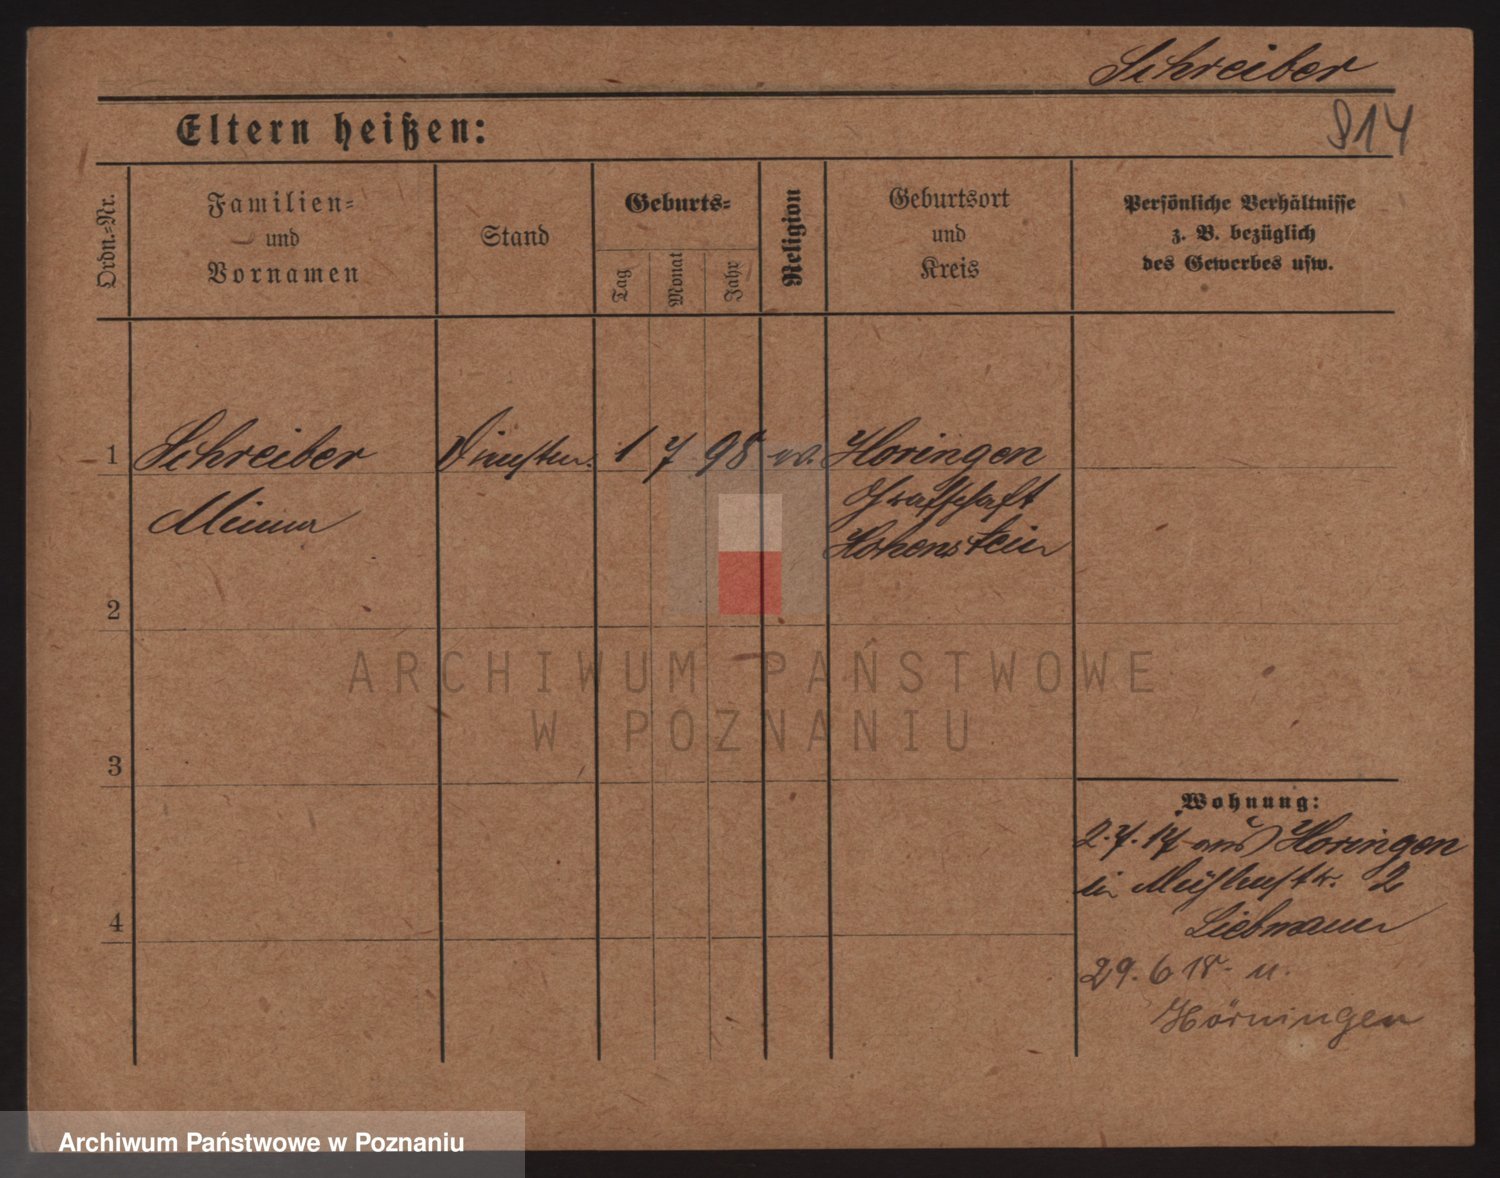 Schreiber
814
Eltern heißen:
Ordn.=Nr.
Familien=
und
Vornamen
Stand
Geburts=
Tag
Monat
Jahr
Religion
Geburtsort
und
Kreis
Persönliche Verhältnisse
z. B. bezüglich
des Gewerbes usw.
1 Schreiber 1 7 98 ev. Horingen
Minna Grafschaft
Hohenstein
2
3
4
Wohnung:
2.7.17 aus Horingen
in Mühlenstr. 2
Liebmann
29.6 18. n.
Hörningen
ARCHIWUM PAŃSTWOWE
W POZNANIU
Archiwum Państwowe w Poznaniu